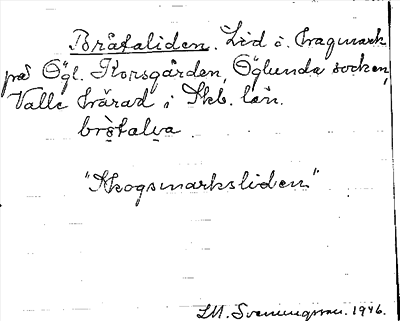 Bråtaliden. Lid i. hagmark
på Ögl. Korsgården, Öglunda socken,
Valle härad i Skb. län.
brs̀talıɐ
"Skogsmarksliden"
LM. Svenungsson. 1946.